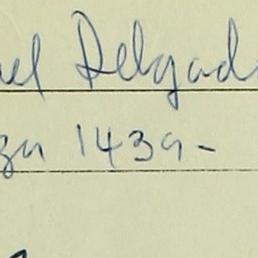 uel Delgad
za 1439-